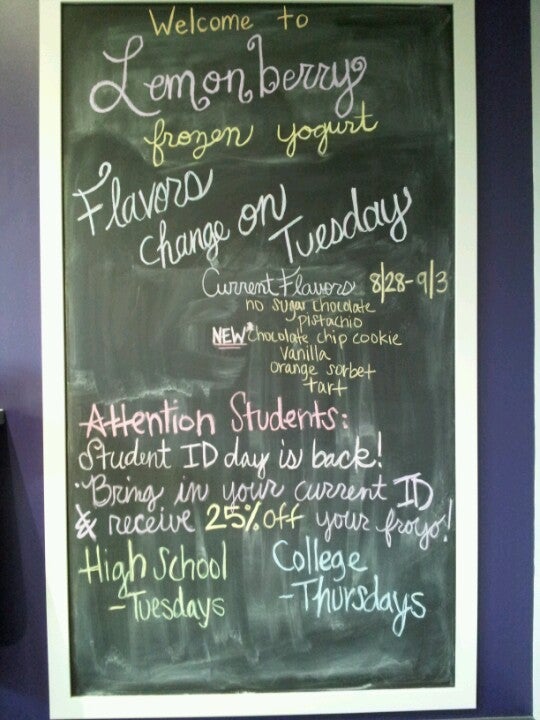 Welcome to
Lemonberry
frozen yogurt
Flavors
change on
Tuesday
Current Flavors 8/28-9/3
no sugar chocolate
pistachio
NEW* Chocolate chip cookie
Vanilla
orange sorbet
tart
Attention Students:
Student ID day is back!
Bring in your current ID
& receive 25% off your froyo!
High School
-Tuesdays
College
-Thursdays